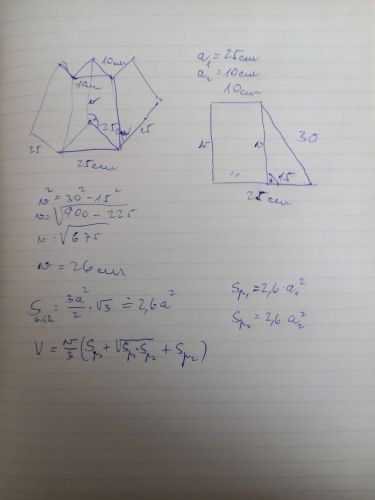 10cm
10cm
v
25cm
25
25
25cm
a₁ = 25cm
a₂ = 10cm
10cm
v
v
30
10
15
25cm
v² = 30² - 15²
v = √900 - 225
v = √675
v = 26cm
= 3a²/2 · √3 ≐ 2,6a²
Sp₁ = 2,6 · a₁²
Sp₂ = 2,6 · a₂²
V = v/3 (Sp₁ + √Sp₁ · Sp₂ + Sp₂)